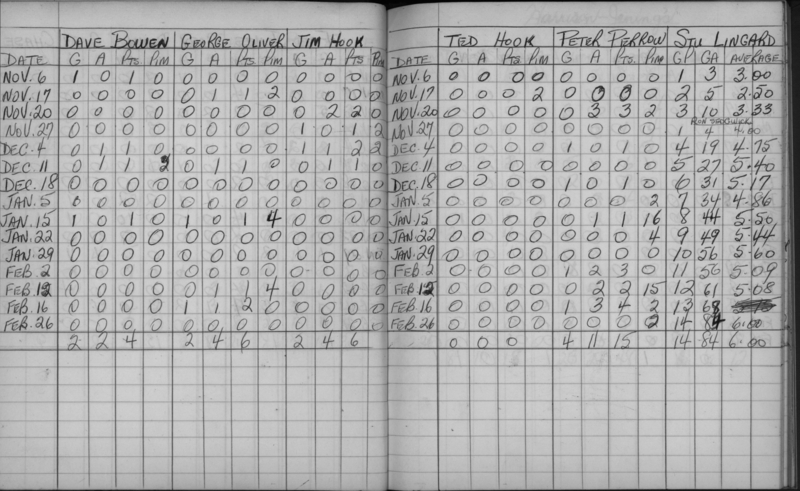 DAVE BOWEN GEORGE OLIVER JIM HOOK
DATE G A Pts. Pim G A Pts. Pim G A Pts Pim
NOV. 6 1 0 1 0 0 0 0 0 0 0 0 0
NOV. 17 0 0 0 0 0 1 1 2 0 0 0 0
NOV. 20 0 0 0 0 0 0 0 0 0 2 2 0
NOV. 27 0 0 0 0 0 0 0 0 1 0 1 2
DEC. 4 0 1 1 0 0 0 0 0 0 1 1 2 2
DEC. 11 0 1 1 2 0 1 1 0 0 1 1 0
DEC. 18 0 0 0 0 0 0 0 0 0 0 0 0
JAN. 5 0 0 0 0 0 0 0 0 0 0 0 0
JAN. 15 1 0 1 0 1 0 1 4 0 0 0 0
JAN. 22 0 0 0 0 0 0 0 0 0 0 0 0
JAN. 29 0 0 0 0 0 0 0 0 0 0 0 0
FEB. 2 0 0 0 0 0 0 0 0 0 0 0 0
FEB 12 0 0 0 0 0 1 1 4 0 0 0 0
FEB. 16 0 0 0 0 1 1 2 0 0 0 0 0
FEB. 26 0 0 0 0 0 0 0 0 0 0 0 0
2 2 4 2 4 6 2 4 6
TED HOOK PETER PERROW STU LINGARD
DATE G A Pts. Pim G A Pts. Pim GP GA AVERAGE
NOV. 6 0 0 0 0 0 0 0 0 1 3 3.00
NOV. 17 0 0 0 2 0 0 0 0 2 5 2.50
NOV. 20 0 0 0 0 0 3 3 2 3 10 3.33
NOV. 27 0 0 0 0 0 0 0 0 1 4 4.00
DEC. 4 0 0 0 0 1 0 1 0 4 19 4.75
DEC. 11 0 0 0 0 0 0 0 0 5 27 5.40
DEC. 18 0 0 0 0 1 0 1 0 6 31 5.17
JAN. 5 0 0 0 0 0 0 0 2 7 34 4.86
JAN. 15 0 0 0 0 0 1 1 16 8 44 5.50
JAN. 22 0 0 0 0 0 0 0 4 9 49 5.44
JAN. 29 0 0 0 0 0 0 0 0 10 56 5.60
FEB. 2 0 0 0 0 1 2 3 0 11 56 5.09
FEB. 12 0 0 0 0 0 2 2 15 12 61 5.08
FEB. 16 0 0 0 0 1 3 4 2 13 68
FEB. 26 0 0 0 0 0 0 0 2 14 84 6.00
0 0 0 4 11 15 14 84 6.00